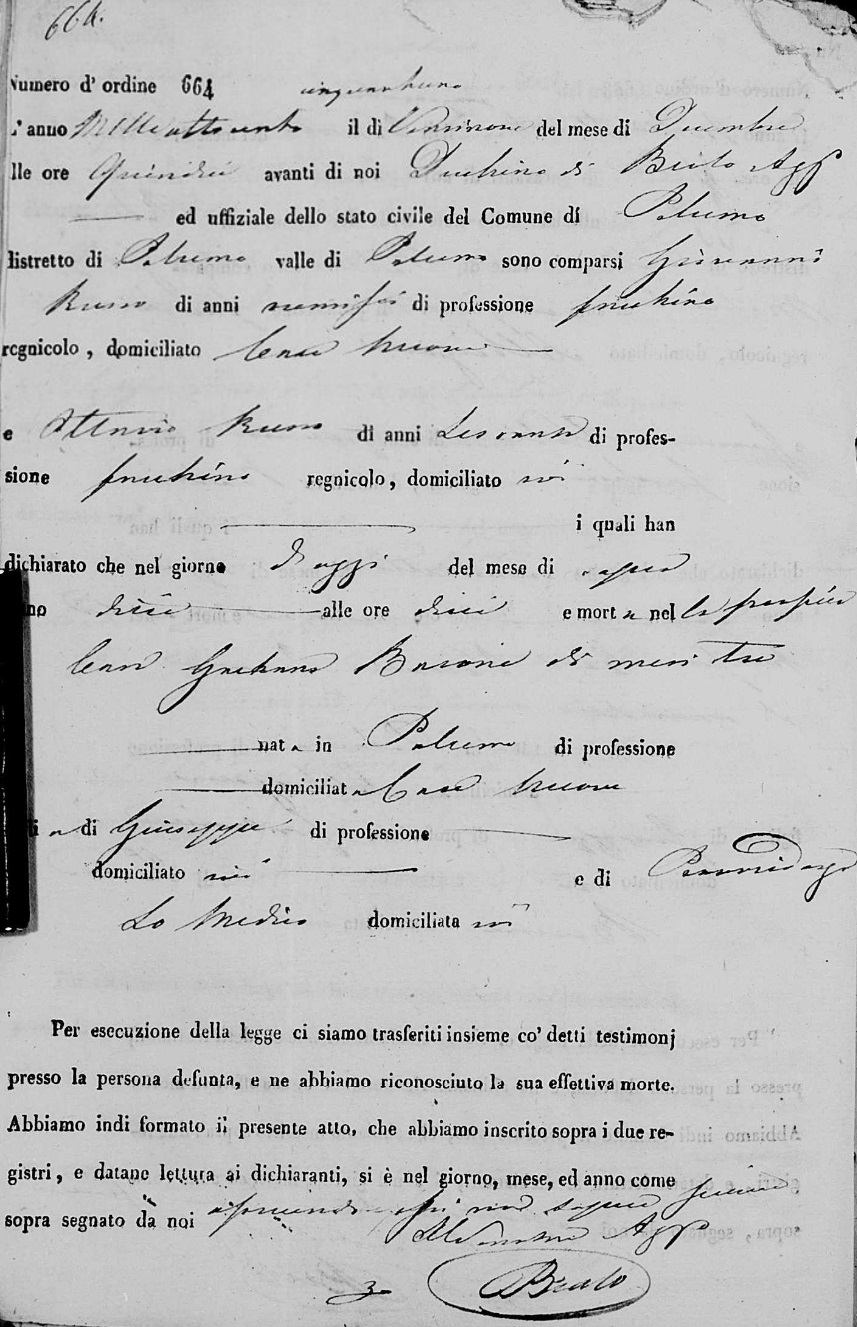 664.
Numero d' ordine 664 cinquantuno
L'anno Milleottocento il dì Ventinove del mese di Decembre
alle ore Quindici avanti di noi di Beilo Agg
ed uffiziale dello stato civile del Comune di Palermo
distretto di Palermo valle di Palermo sono comparsi Giovanni
Russo di anni di professione facchino
regnicolo, domiciliato Case Nuove
e Ottavio Russo di anni Sessanta di profes-
sione facchino regnicolo, domiciliato ivi
i quali han
dichiarato che nel giorno d'oggi del mese di sopra
anno detto alle ore dieci e morta nella propria
Casa Gaetana Barone di mesi Tre
nata in Palermo di professione
domiciliata Case Nuove
di Giuseppe di professione
domiciliato ivi e di
Lo Medico domiciliata ivi
Per esecuzione della legge ci siamo trasferiti insieme co' detti testimonj
presso la persona defunta, e ne abbiamo riconosciuto la sua effettiva morte.
Abbiamo indi formato il presente atto, che abbiamo inscrito sopra i due re-
gistri, e datane lettura ai dichiaranti, si è nel giorno, mese, ed anno come
sopra segnato da noi non sapere scrivere
Agg